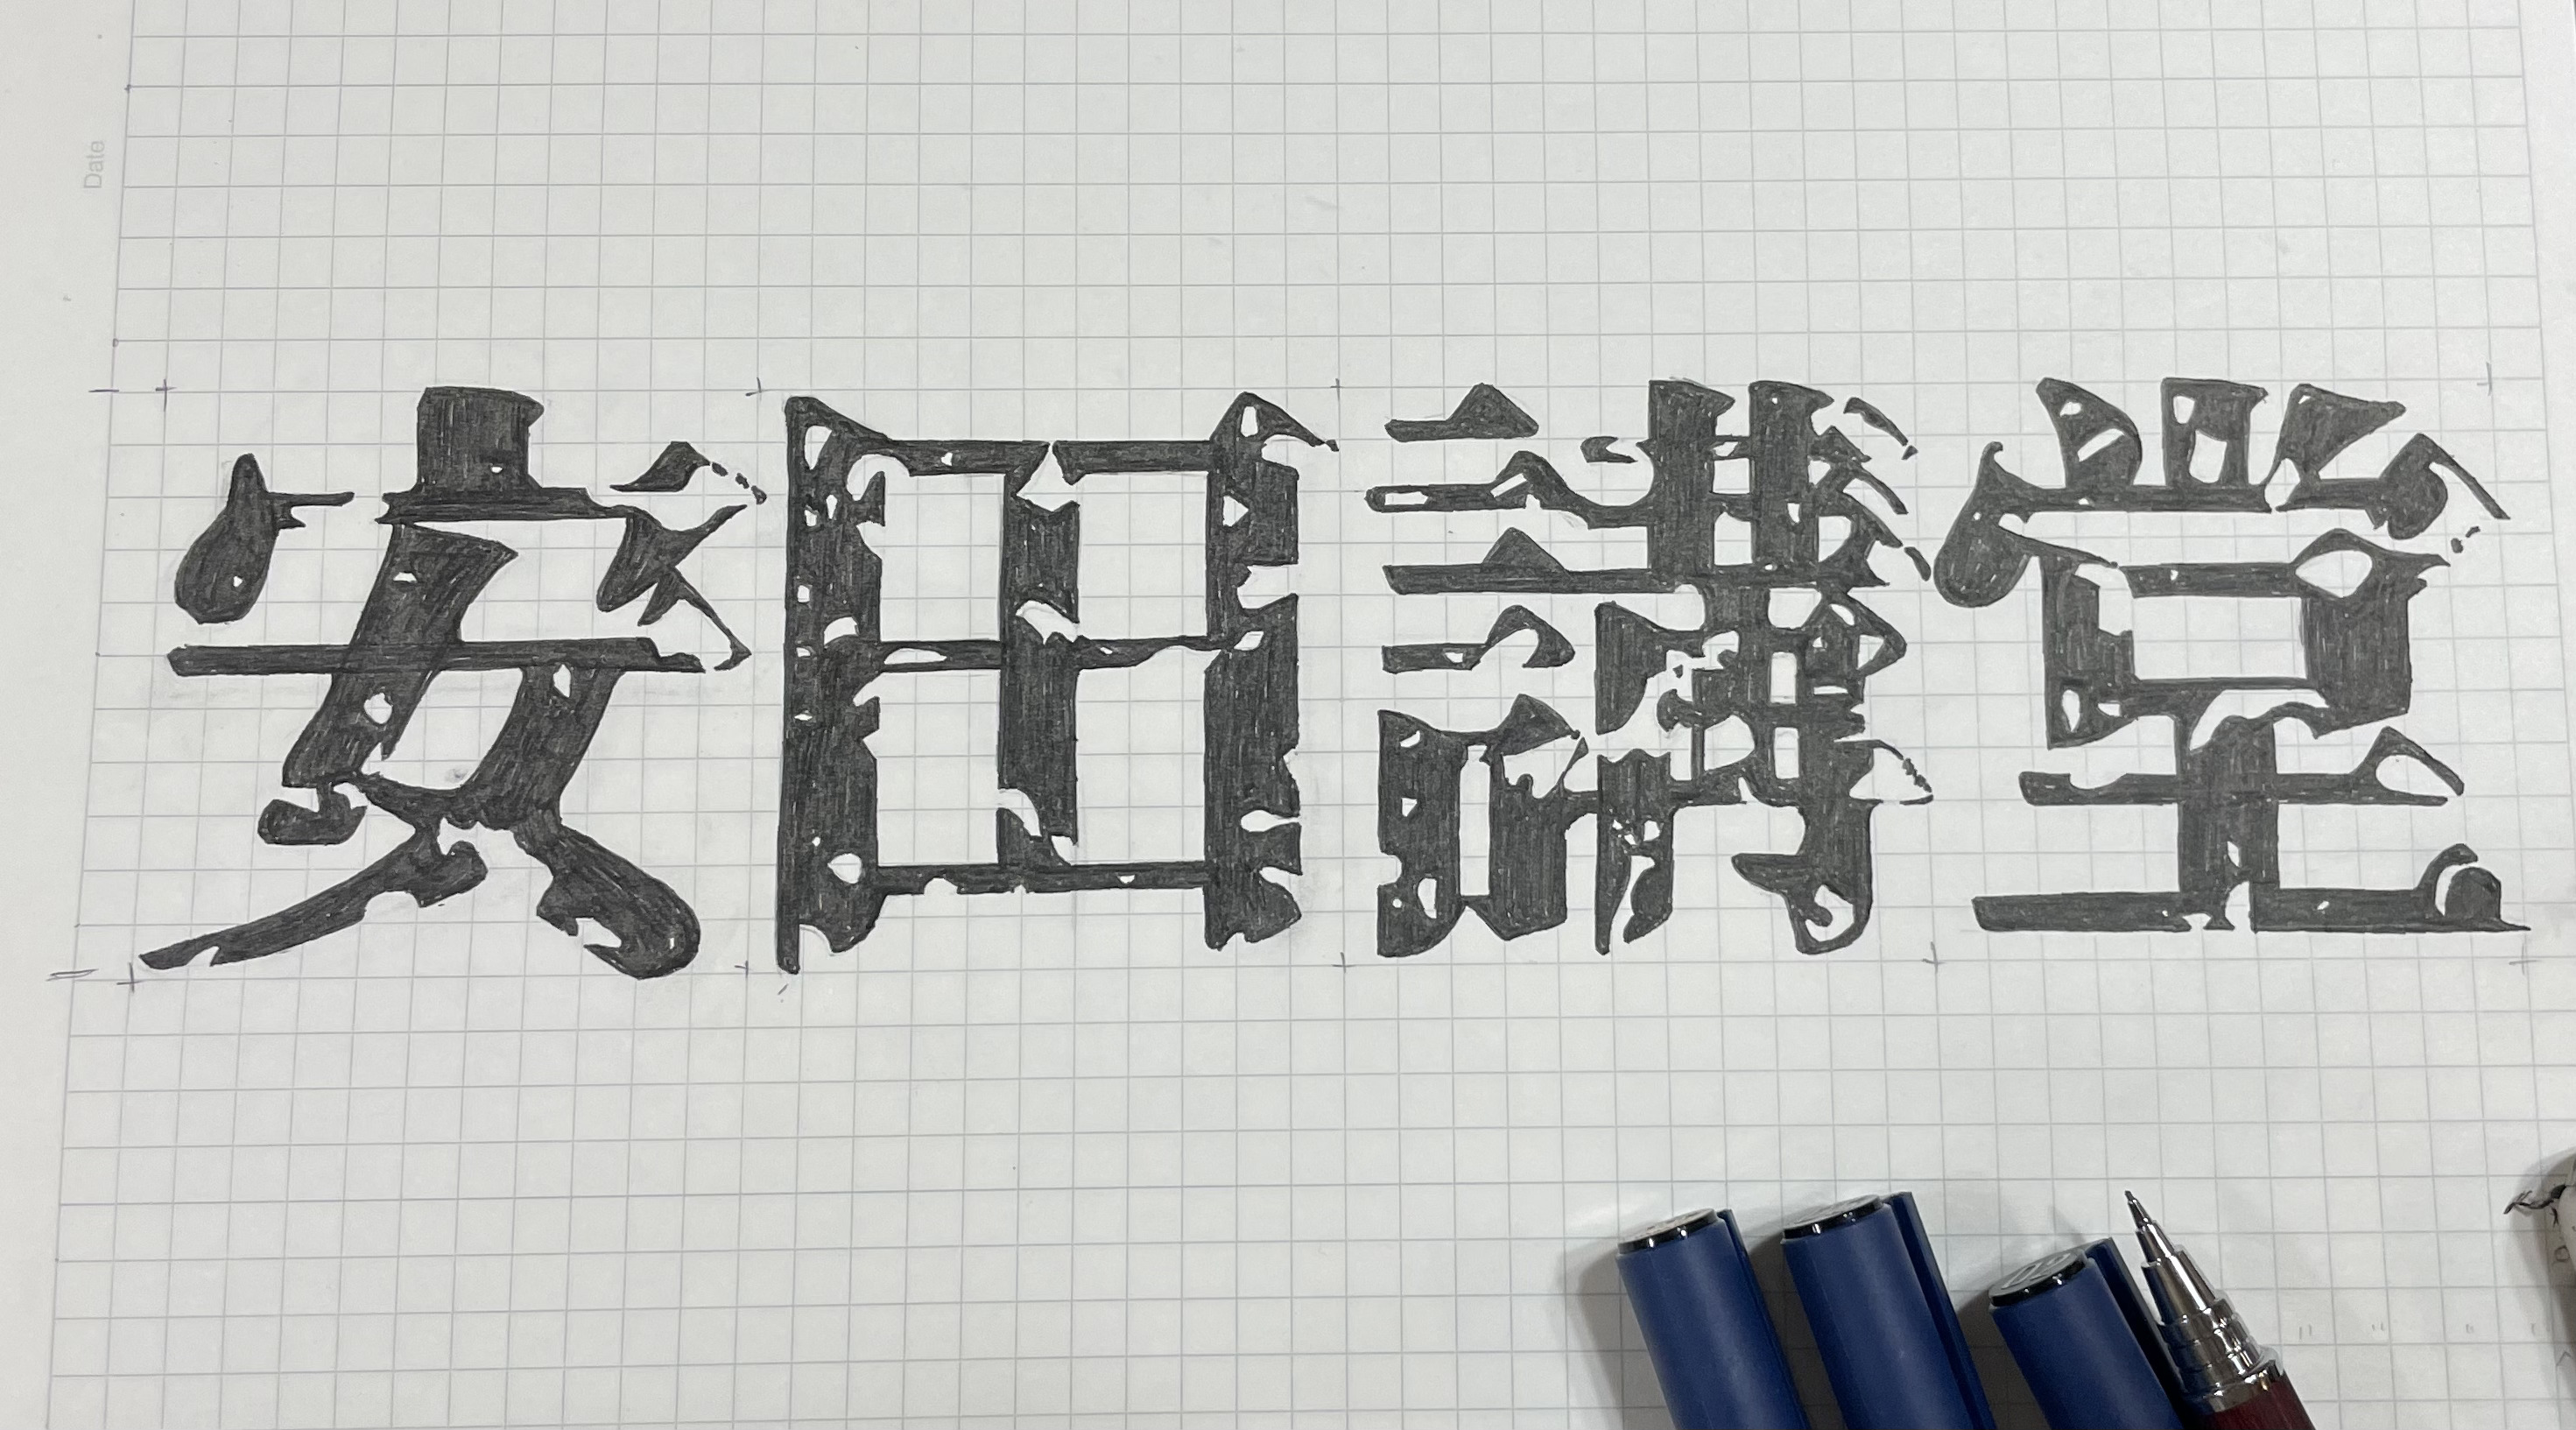 Date
安田講堂